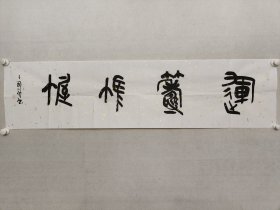 運籌帷幄